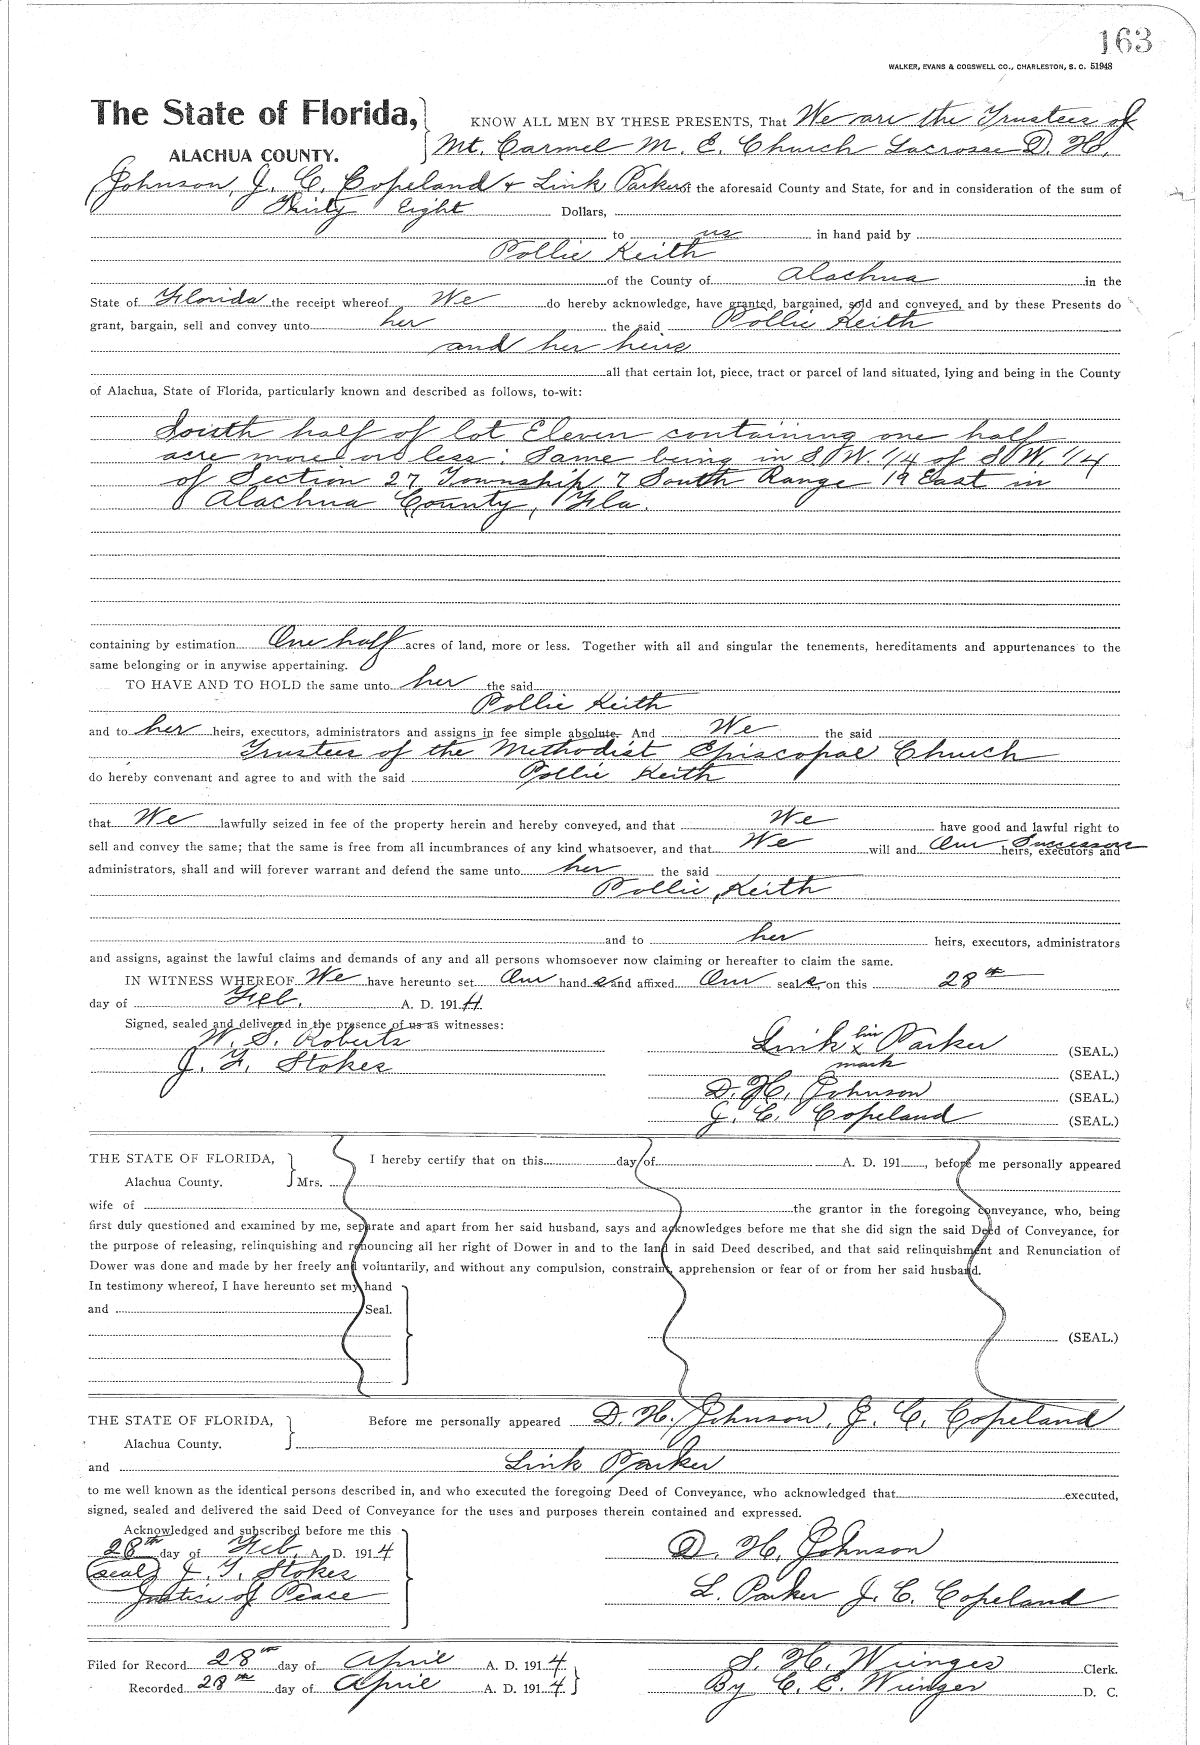 163
WALKER, EVANS & COGSWELL CO., CHARLESTON, S. C. 51948
The State of Florida,
ALACHUA COUNTY.
KNOW ALL MEN BY THESE PRESENTS, That We are the Trustees of
Mt. Carmel M. E. Church Lacrosse D. H.
Johnson, J. C. Copeland & Link Parker the aforesaid County and State, for and in consideration of the sum of
Thirty Eight Dollars,
to us in hand paid by
Pollie Keith
of the County of Alachua in the
State of Florida the receipt whereof We do hereby acknowledge, have granted, bargained, sold and conveyed, and by these Presents do
grant, bargain, sell and convey unto her the said Pollie Keith
and her heirs
all that certain lot, piece, tract or parcel of land situated, lying and being in the County
of Alachua, State of Florida, particularly known and described as follows, to-wit:
South half of lot Eleven containing one half
acre more or less: Same being in S.W. 1/4 of S.W. 1/4
of Section 27 Township 7 South Range 19 East in
Alachua County, Fla.
containing by estimation One half acres of land, more or less. Together with all and singular the tenements, hereditaments and appurtenances to the
same belonging or in anywise appertaining.
TO HAVE AND TO HOLD the same unto her the said
Pollie Keith
and to her heirs, executors, administrators and assigns in fee simple absolute. And We the said
Trustees of the Methodist Episcopal Church
do hereby convenant and agree to and with the said Pollie Keith
that We lawfully seized in fee of the property herein and hereby conveyed, and that We have good and lawful right to
sell and convey the same; that the same is free from all incumbrances of any kind whatsoever, and that We will and Our Successors heirs, executors and
administrators, shall and will forever warrant and defend the same unto her the said
Pollie Keith
and to her heirs, executors, administrators
and assigns, against the lawful claims and demands of any and all persons whomsoever now claiming or hereafter to claim the same.
IN WITNESS WHEREOF We have hereunto set Our hands and affixed Our seals, on this 28th
day of Feb. A. D. 1914
Signed, sealed and delivered in the presence of us as witnesses:
W. S. Roberts
J. F. Stokes
Link his x mark Parker (SEAL.)
(SEAL.)
D. H. Johnson (SEAL.)
J. C. Copeland (SEAL.)
THE STATE OF FLORIDA,
Alachua County.
I hereby certify that on this day of A. D. 191 , before me personally appeared
Mrs.
wife of the grantor in the foregoing conveyance, who, being
first duly questioned and examined by me, separate and apart from her said husband, says and acknowledges before me that she did sign the said Deed of Conveyance, for
the purpose of releasing, relinquishing and renouncing all her right of Dower in and to the land in said Deed described, and that said relinquishment and Renunciation of
Dower was done and made by her freely and voluntarily, and without any compulsion, constraint, apprehension or fear of or from her said husband.
In testimony whereof, I have hereunto set my hand
and Seal.
(SEAL.)
THE STATE OF FLORIDA,
Alachua County.
Before me personally appeared D. H. Johnson, J. C. Copeland
and Link Parker
to me well known as the identical persons described in, and who executed the foregoing Deed of Conveyance, who acknowledged that executed,
signed, sealed and delivered the said Deed of Conveyance for the uses and purposes therein contained and expressed.
Acknowledged and subscribed before me this
28th day of Feb. A. D. 1914
(seal) J. F. Stokes
Justice of Peace
D. H. Johnson
L. Parker J. C. Copeland
Filed for Record 28th day of April A. D. 1914
Recorded 28th day of April A. D. 1914
S. H. Wienges Clerk.
By C. C. Wienges D. C.